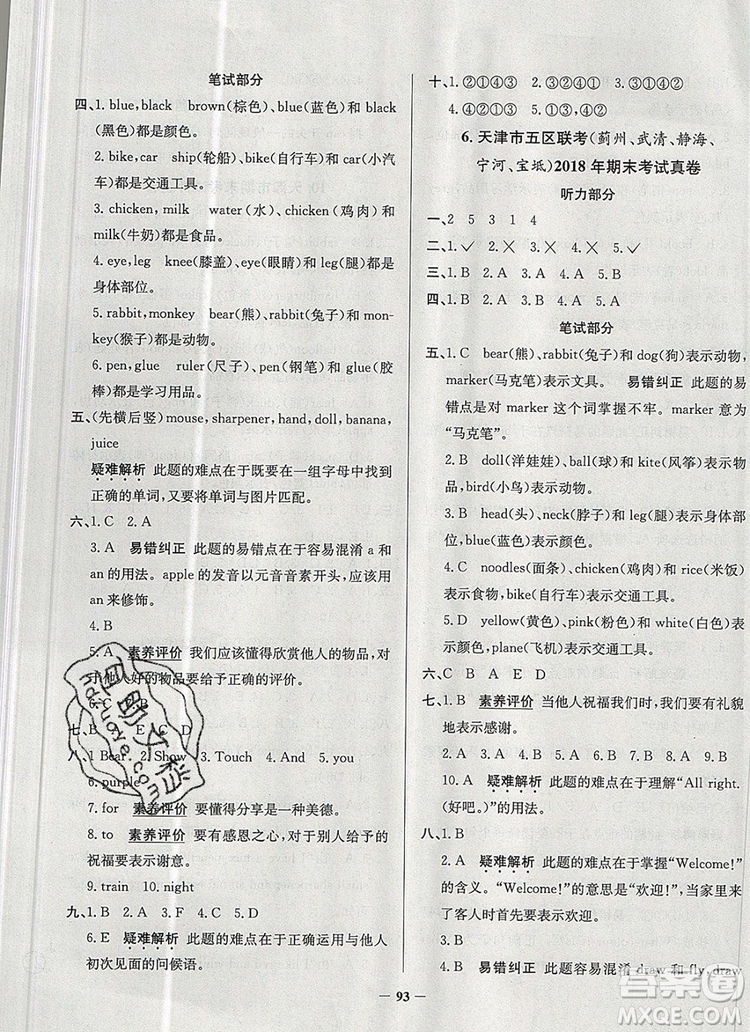 笔试部分
四、1. blue,black brown(棕色)、blue(蓝色)和 black
(黑色)都是颜色。
2. bike,car ship(轮船)、bike(自行车)和 car(小汽
车)都是交通工具。
3. chicken, milk water(水)、chicken(鸡肉)和
milk(牛奶)都是食品。
4. eye,leg knee(膝盖)、eye(眼睛)和 leg(腿)都是
身体部位。
5. rabbit,monkey bear(熊)、rabbit(兔子)和 mon-
key(猴子)都是动物。
6. pen,glue ruler(尺子)、pen(钢笔)和 glue(胶
棒)都是学习用品。
五、(先横后竖)mouse, sharpener, hand, doll, banana,
juice
疑难解析 此题的难点在于既要在一组字母中找到
正确的单词,又要将单词与图片匹配。
六、1. C 2. A
3. A 易错纠正 此题的易错点在于容易混淆 a 和
an 的用法。apple 的发音以元音音素开头,应该用
an 来修饰。
4. B
5. A 素养评价 我们应该懂得欣赏他人的物品,对
于他人好的物品要给予正确的评价。
6. C B A C
八、1. Bear 2. Show 3. Touch 4. And 5. you
6. purple
7. for 素养评价 要懂得分享是一种美德。
8. to 素养评价 要有感恩之心,对于别人给予的
祝福要表示谢意。
9. train 10. night
九、1. B 2. A 3. F 4. C 5. D
6. E 疑难解析 此题的难点在于正确运用与他人
初次见面的问候语。
十、1. ②①④③ 2. ①④③② 3. ②④③①
4. ②①④③ 5. ③①④②
6. 天津市五区联考(蓟州、武清、静海、
宁河、宝坻)2018 年期末考试真卷
听力部分
一、2 5 3 1 4
二、1. ✓ 2. ✗ 3. ✗ 4. ✗ 5. ✓
三、1. B 2. A 3. A 4. A 5. B
四、1. B 2. A 3. A 4. B 5. B
笔试部分
五、1. C bear(熊)、rabbit(兔子)和 dog(狗)表示动物,
marker(马克笔)表示文具。 易错纠正 此题的易
错点是对 marker 这个词掌握不牢。marker 意为
“马克笔”。
2. B doll(洋娃娃)、ball(球)和 kite(风筝)表示玩具
品,bird(小鸟)表示动物。
3. B head(头)、neck(脖子)和 leg(腿)表示身体部
位,blue(蓝色)表示颜色。
4. C noodles(面条)、chicken(鸡肉)和 rice(米饭)
表示食物,bike(自行车)表示交通工具。
5. D yellow(黄色)、pink(粉色)和 white(白色)表
示颜色,plane(飞机)表示交通工具。
六、C B A E D
七、1. B 素养评价 当他人祝福我们时,我们要有礼貌
地表示感谢。
2. B 3. A 4. A 5. A 6. B 7. A 8. B 9. A
10. A 疑难解析 此题的难点在于理解“All right.
(好吧。)”的用法。
八、1. B
2. A 疑难解析 此题的难点在于掌握“Welcome!”
的含义。“Welcome!”的意思是“欢迎!”,当家里来
了客人时首先要表示欢迎。
3. B
4. B 易错纠正 此题容易混淆 draw 和 fly, draw
— 93 —
答案圈
MXQE.COM